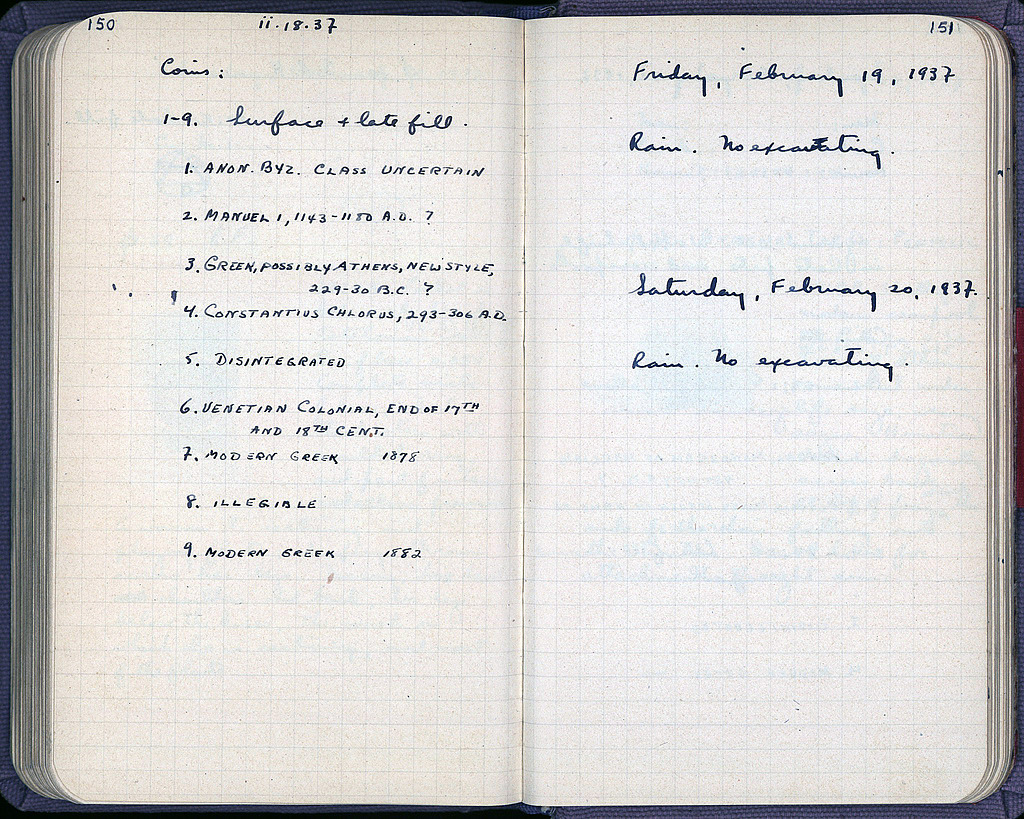 150
ii.18.37
Coins:
1-9. Surface + late fill.
1. ANON. BYZ. CLASS UNCERTAIN
2. MANUEL I, 1143-1180 A.D. ?
3. GREEK, POSSIBLY ATHENS, NEW STYLE,
229-30 B.C. ?
4. CONSTANTIUS CHLORUS, 293-306 A.D.
5. DISINTEGRATED
6. VENETIAN COLONIAL, END OF 17TH
AND 18TH CENT.
7. MODERN GREEK 1878
8. ILLEGIBLE
9. MODERN GREEK 1882
151
Friday, February 19, 1937
Rain. No excavating.
Saturday, February 20, 1937.
Rain. No excavating.